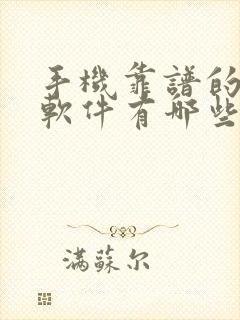 手機靠譜的
軟件有哪些
滿蘇尔